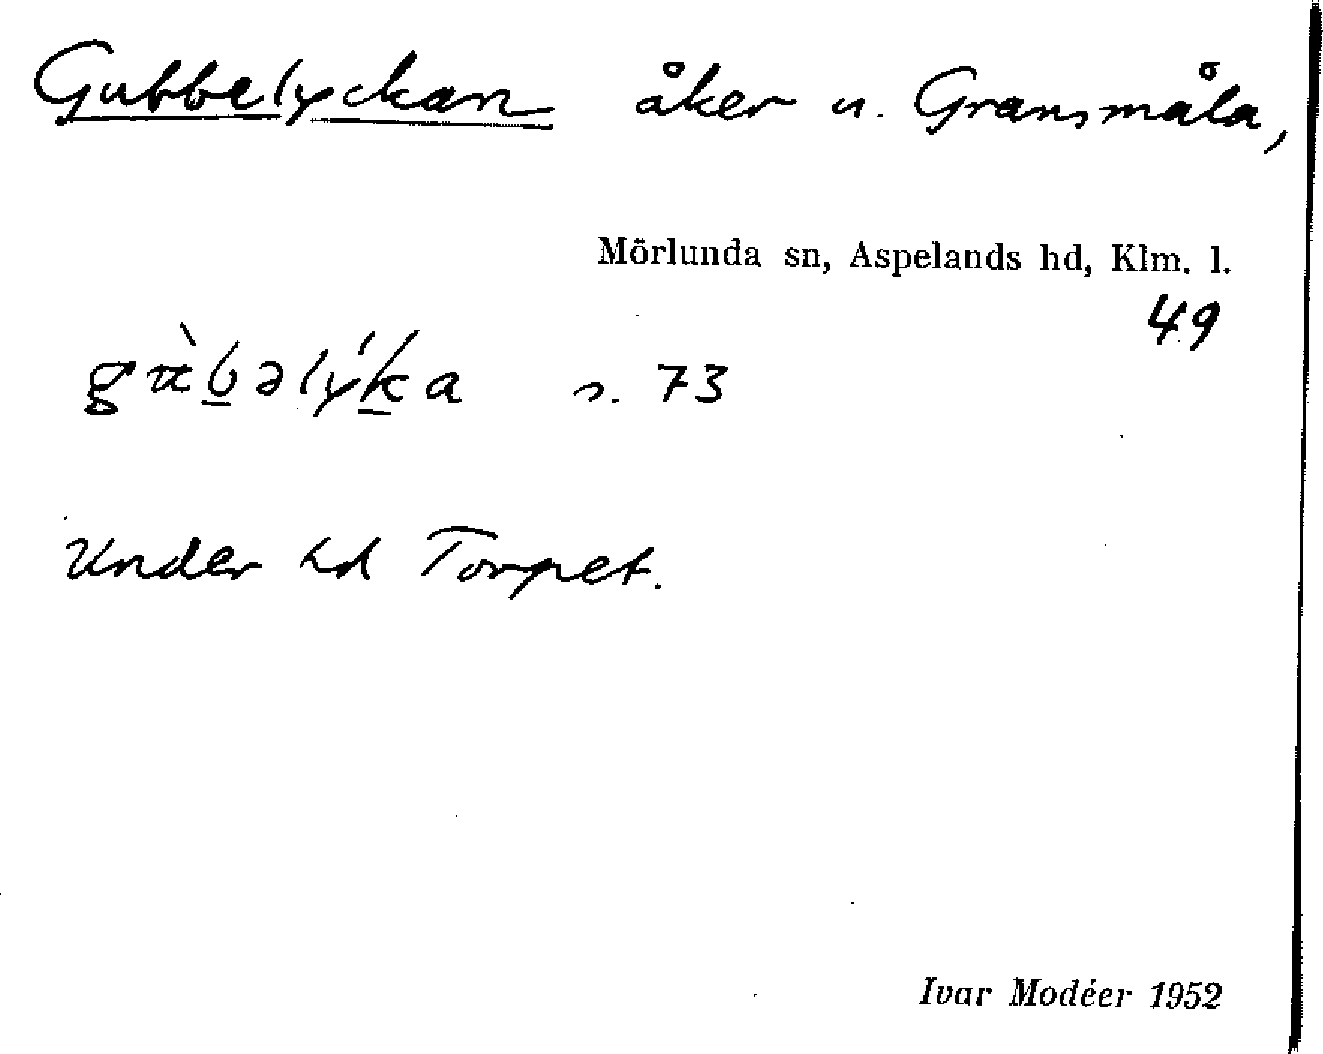 Gubbelyckan åker u. Gransmåla,
Mörlunda sn, Aspelands hd, Klm. l.
49
s. 73
Under hd Torpet.
Ivar Modéer 1952